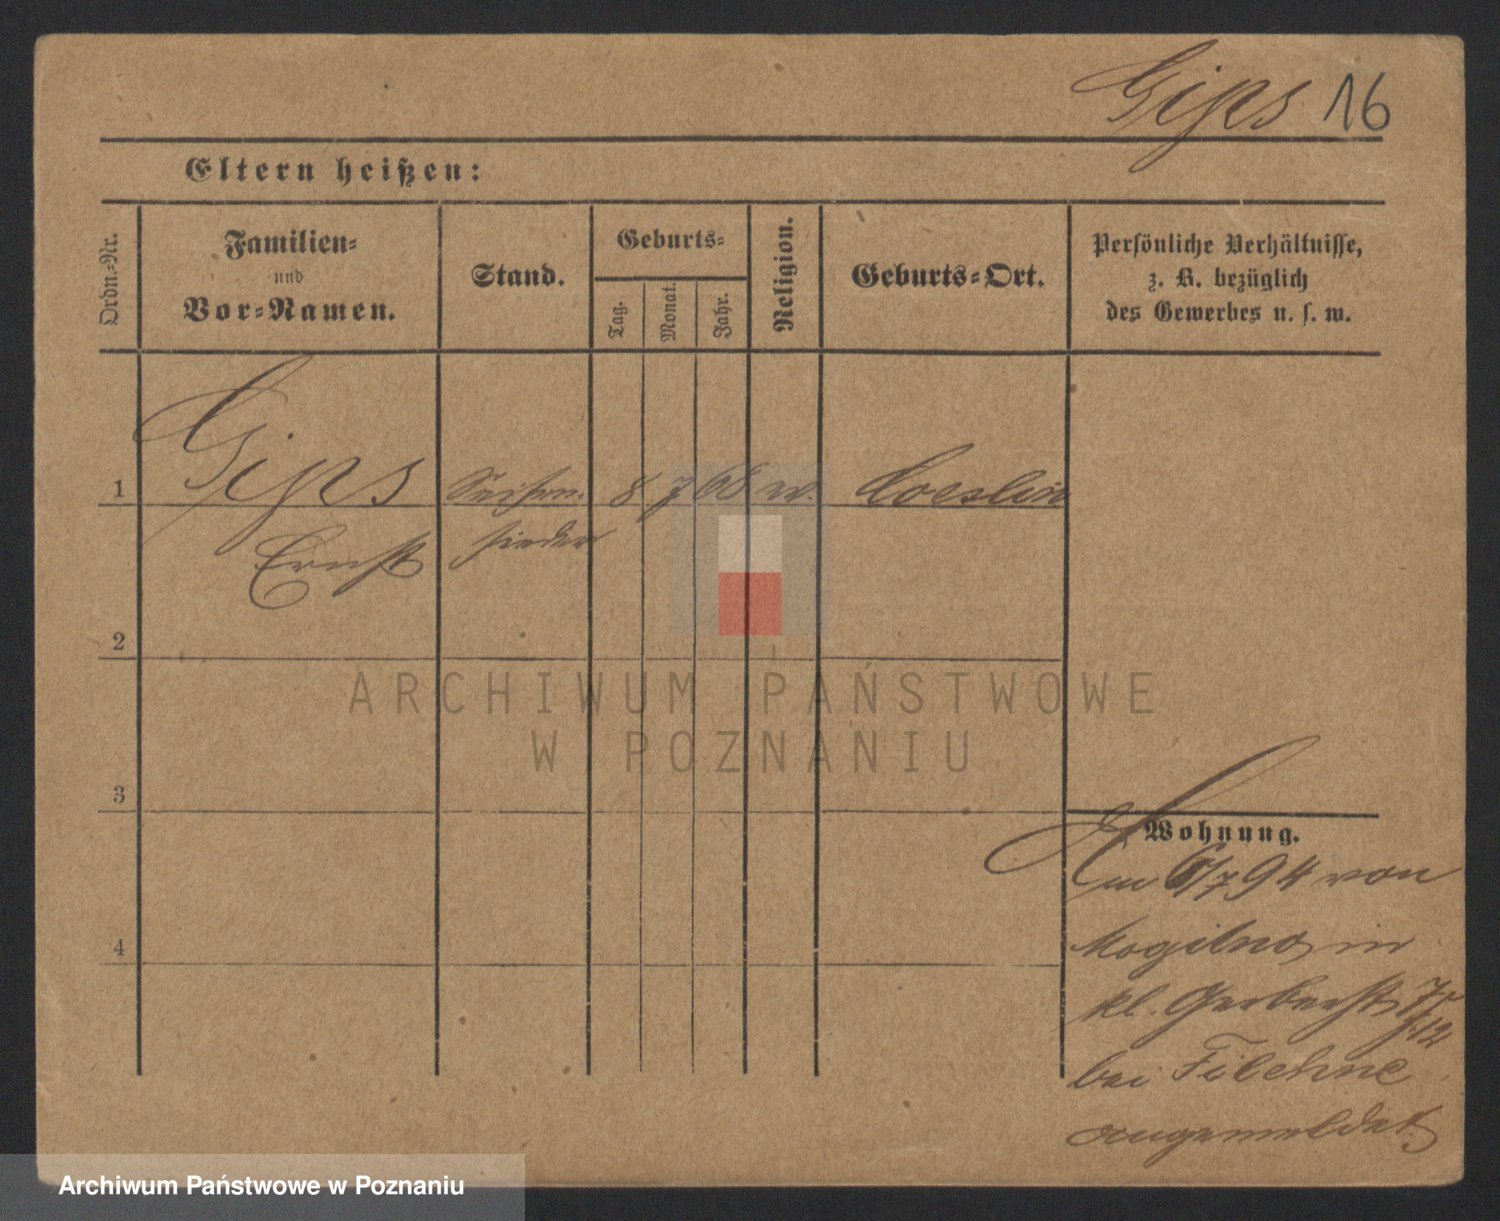 Gips 16
Eltern heißen:
Ordn.-Nr.
Familien-
und
Vor-Namen.
Stand.
Geburts-
Tag.
Monat.
Jahr.
Religion.
Geburts-Ort.
Persönliche Verhältnisse,
z. B. bezüglich
des Gewerbes u. s. w.
1 Gips Seifen- 8 7 68 ev. Coeslin
Ernst sieder
2
3
4
Wohnung.
Am 6/7 94 von
Mogilno in
kl. Gerberstr 7
bei Filehne
angemeldet
ARCHIWUM PAŃSTWOWE
W POZNANIU
Archiwum Państwowe w Poznaniu